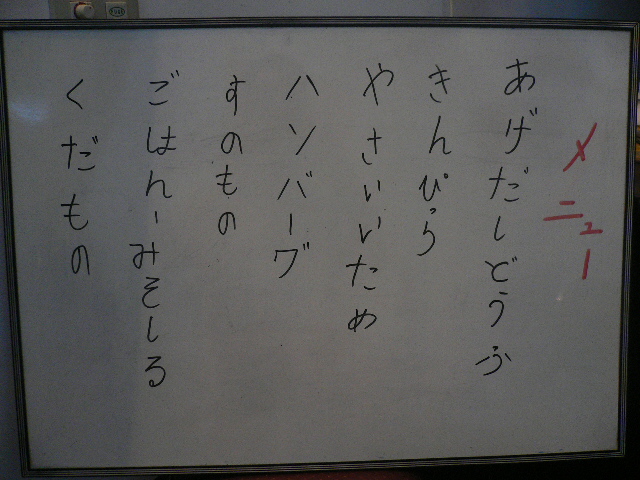 メニュー
あげだしどうふ
きんぴら
やさいいため
ハンバーグ
すのもの
ごはん－みそしる
くだもの